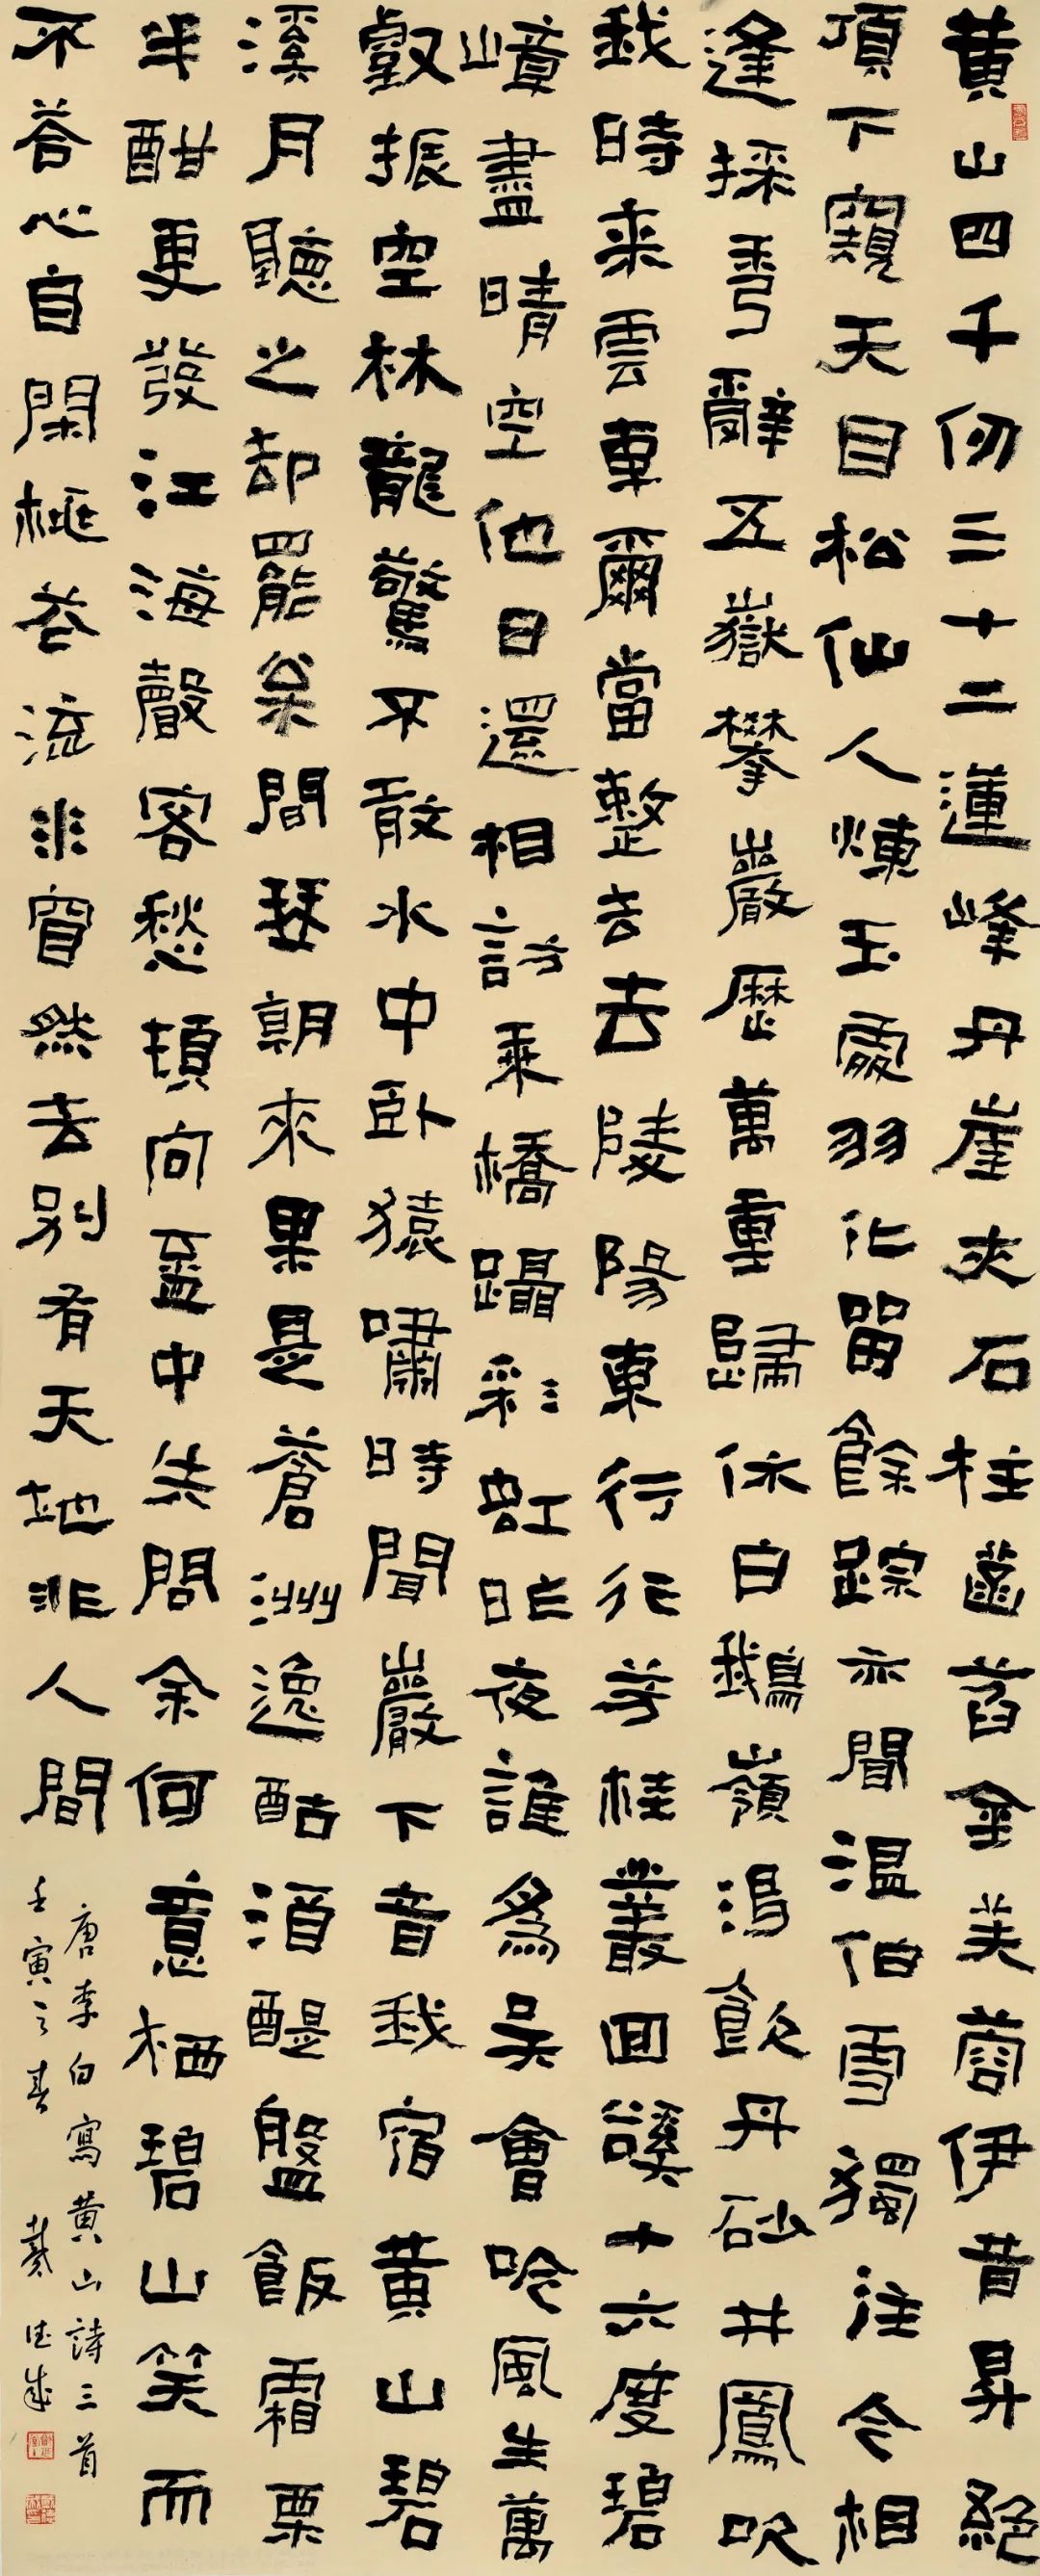 黄山四千仞三十二蓮峰丹崖夾石柱菡萏金芙蓉伊昔昇絕
頂下窺天目松仙人煉玉處羽化留餘踪亦聞温伯雪獨往今相
逢採秀辭五嶽攀巖歷萬重歸休白鵝嶺渴飲丹砂井鳳吹
我時來雲車爾當整去去陵陽東行行芳桂叢回谿十六度碧
嶂盡晴空他日還相訪乘橋躡彩虹昨夜誰為吳會吟風生萬
壑振空林龍驚不敢水中臥猿嘯時聞巖下音我宿黄山碧
溪月聽之却罷松間琴朝來果是蒼洲逸酤酒醍盤飯霜栗
半酣更發江海聲客愁頓向盃中失問余何意栖碧山笑而
不答心自閑桃花流水窅然去别有天地非人間
唐李白寫黄山詩三首
壬寅之春